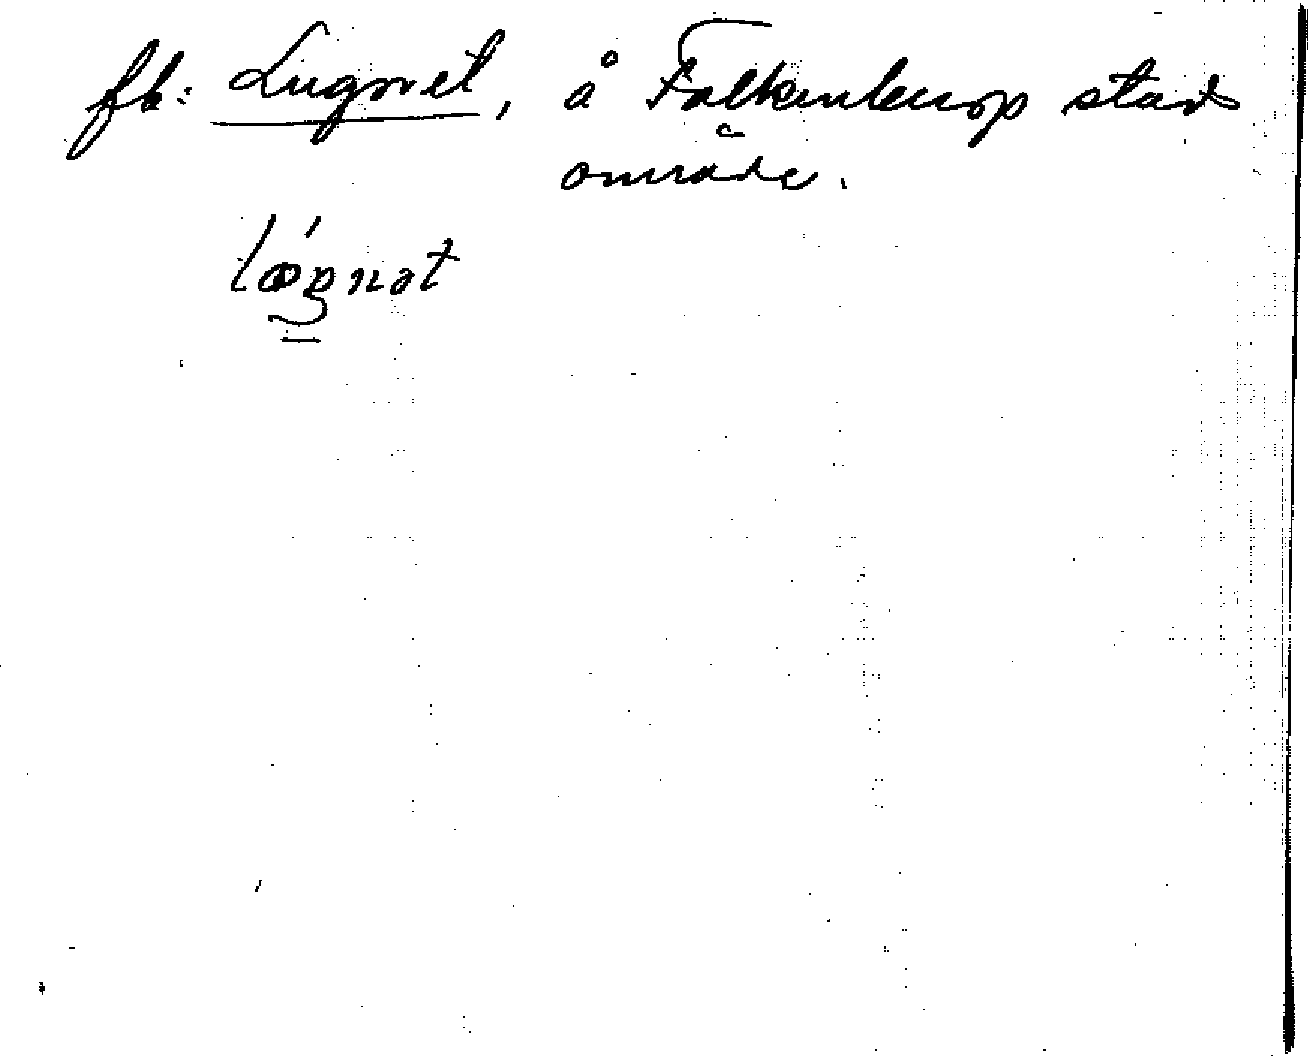 fb: Lugnet, å Falkenbergs stads
område.